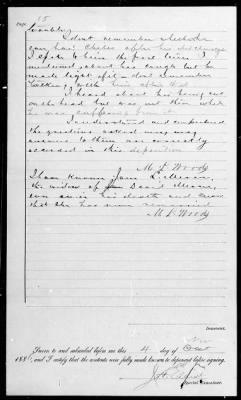 Page 15
trouble.
I dont remember whether
I saw him after his discharge
I spoke to him the first time I
met him, about his cough but he
made light of it. I dont remember
talking with him after that
I heard about his being cut
on the head but was not there when
he was
I understand and comprehend
the questions asked me, my
answers to them are correctly
recorded in this deposition
M. L. Woody
I have known Jane
the widow of David
ever since his death and know
that she has never remarried
M. L. Woody
Deponent.
Sworn to and subscribed before me this 4 day of
188 , and I certify that the contents were fully made known to deponent before signing.
Special Examiner.